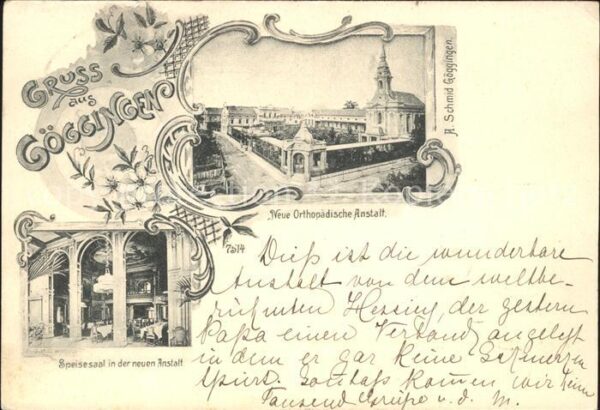 Gruss
aus
Göggingen
Neue Orthopädische Anstalt.
A. Schmid Göggingen.
7514
Speisesaal in der neuen Anstalt
Dieß ist die wunderbare
Anstalt von dem weltbe-
rühmten Hessing, der gestern
Papa einen Verband angelegt
in dem er gar keine Schmerzen
spürt. kommen wir heim
Tausend Grüße u. d. M.